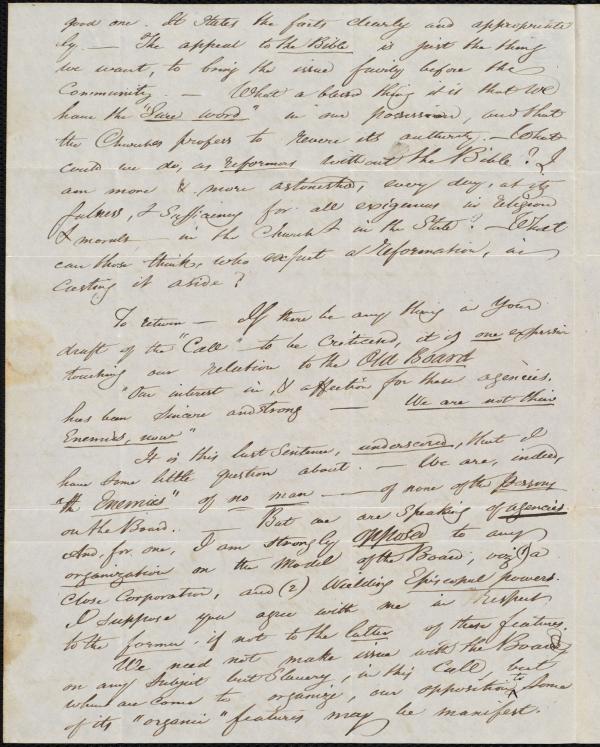 good one. It states the facts clearly and appropriate
ly. — The appeal to the Bible is just the thing
we want, to bring the issue fairly before the
Community. — What a blessed thing it is that we
have the "Sure word" in our possession, and that
the Churches profess to revere its authority. — What
could we do, as reformers without the Bible? I
am more & more astonished, every day, at its
fulness, & sufficiency for all exigencies in religion
& morals — in the Church & in the State? — What
can those think, who expect a reformation, in
casting it aside?
To return — If there be any thing in your
draft of the "Call" to be criticised, it is one expression
touching our relation to the Old Board
"Our interest in, & affection for these agencies,
has been sincere and strong — We are not their
Enemies, now"
It is this last sentence, underscored, that I
have some little question about. — We are, indeed,
"the Enemies" of no man — of none of the persons
on the Board. But we are speaking of agencies.
And, for one, I am strongly opposed to any
organization on the model of the Board; viz (1) a
Close Corporation, and (2) Wielding Episcopal powers.
I suppose you agree with me in respect
to the former if not to the latter of these features.
We need not make issue with the Board
on any subject but Slavery, in this Call, but
when we come to organize, our opposition to some
of its "organic" features may be manifest.